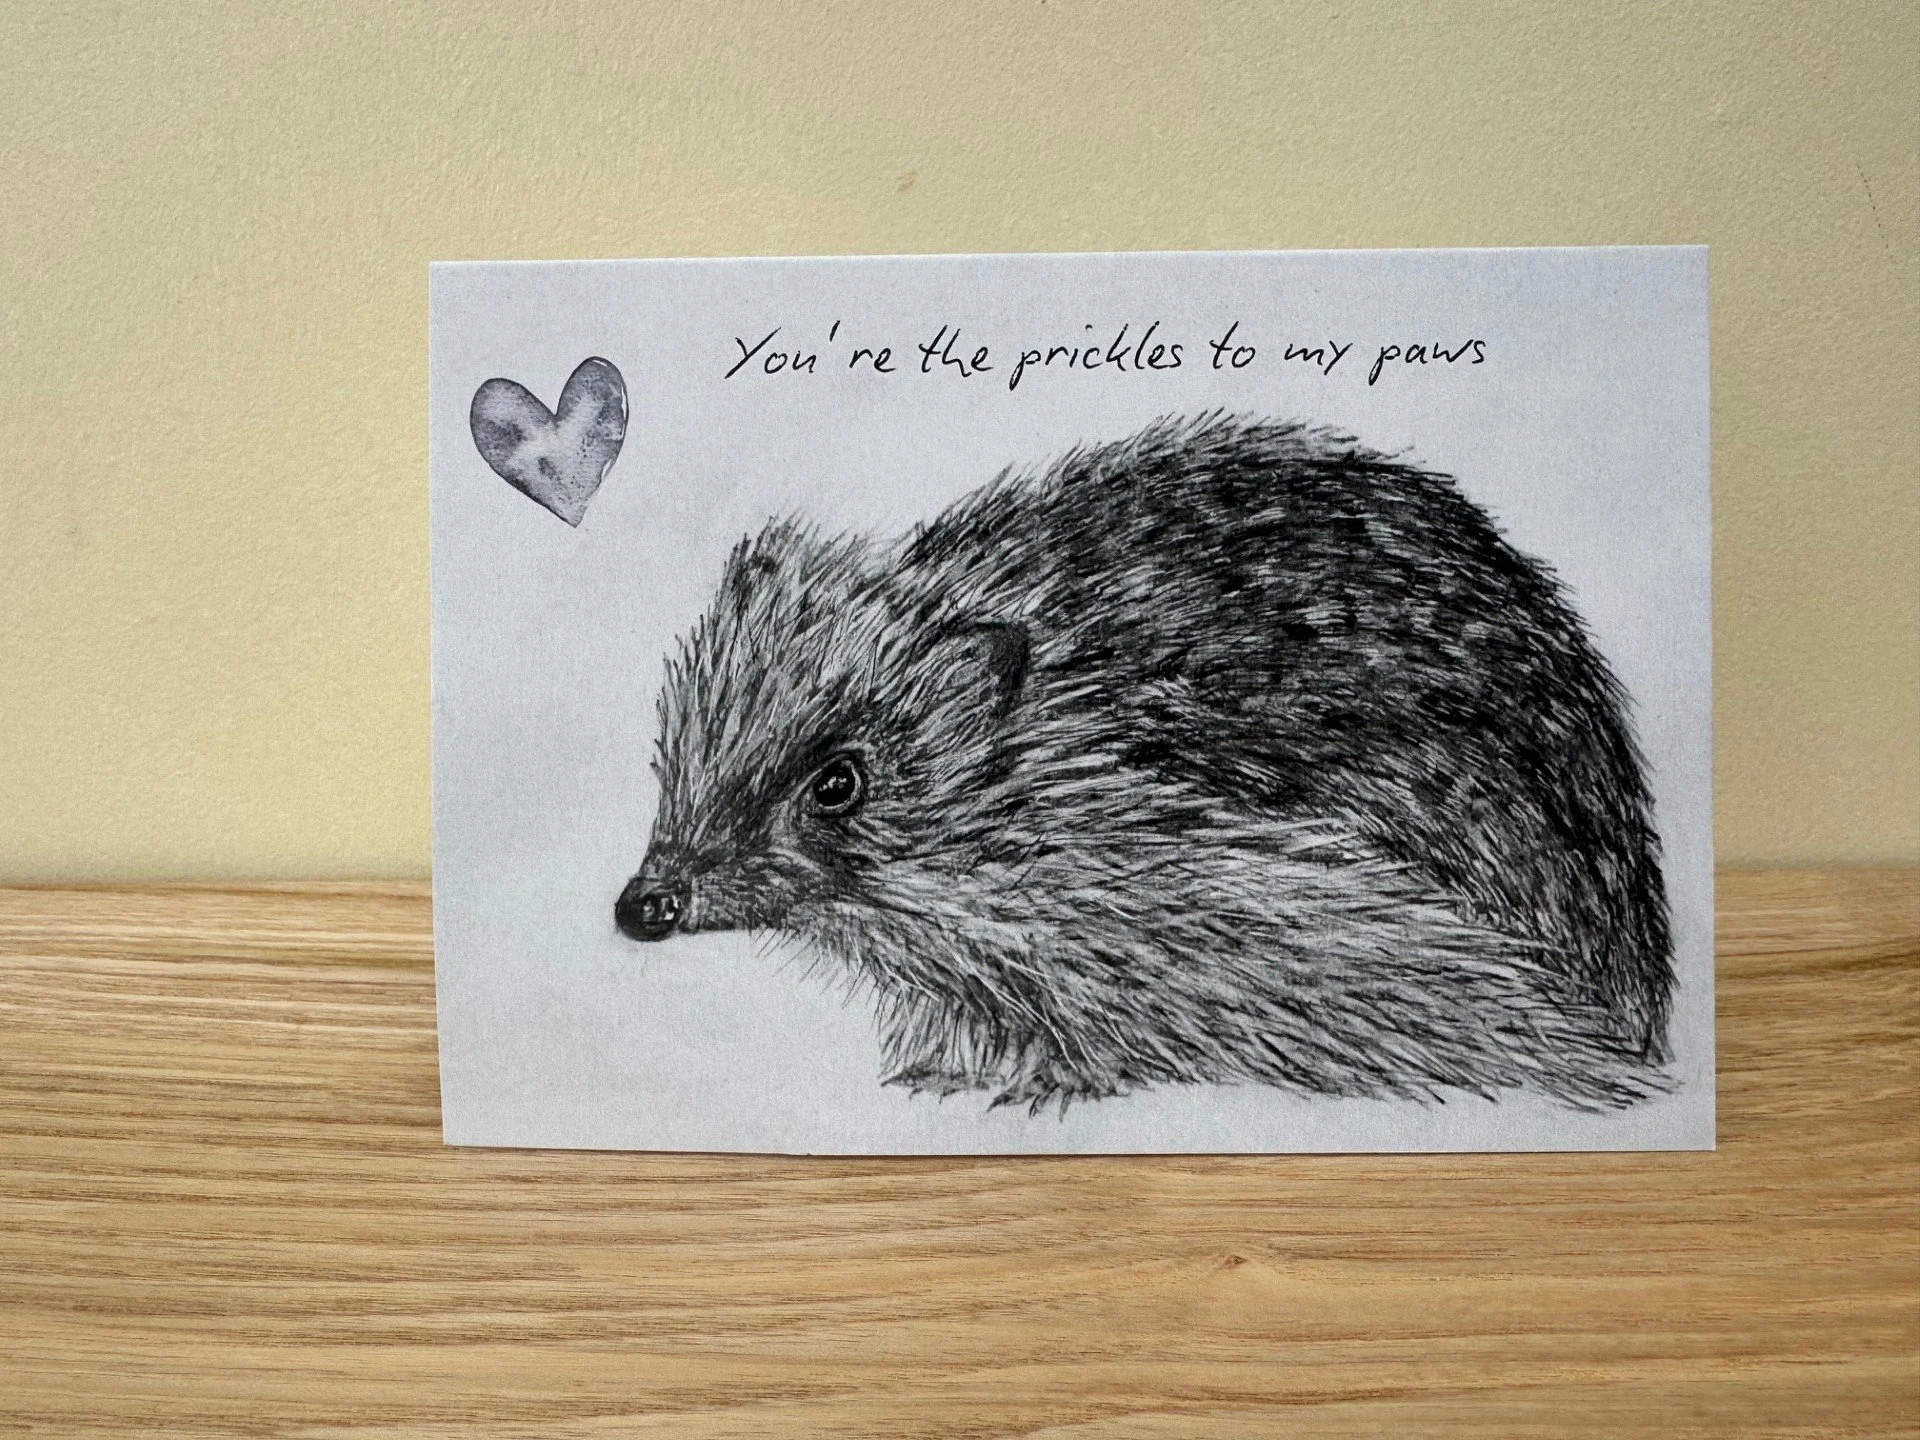 You're the prickles to my paws